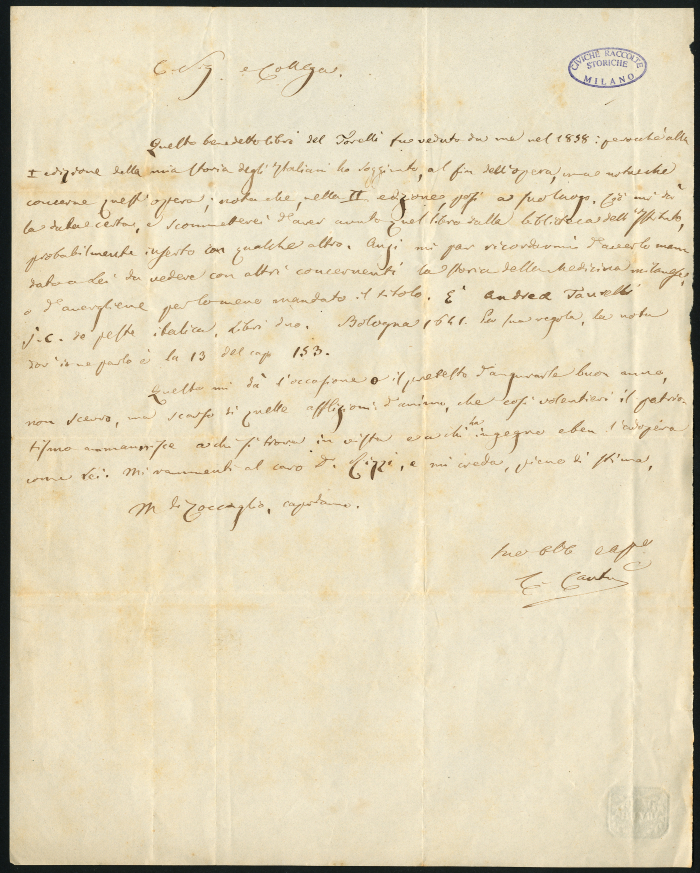 C. Sig. e Collega.
CIVICHE RACCOLTE
STORICHE
MILANO
Questo benedetto libri del Torelli fu veduto da me nel 1858: perocchè alla
I edizione della mia Storia degli Italiani ho soggiunto, al fin dell'opera, una nota che
concerne quest'opera; nota che, nella II edizione, posi a suo luogo. Ciò mi dà
la data certa, e scommetterei d'aver avuto quel libro dalla biblioteca dell'Istituto,
probabilmente inserto con qualche altro. Anzi mi par ricordarmi d'averlo man
dato a Lei da vedere con altri concernenti la storia della Medicina milanese,
o d'avergliene per lo meno mandato il titolo. È Andrea Taurelli
J.C. de peste italica, Libri duo. Bologna 1641. Per sua regola, la nota
dov'io ne parlo è la 13 del cap 153.
Questo mi dà l'occasione o il pretesto d'augurarle buon anno,
non scevro, ma scarso di quelle afflizioni d'animo, che così volentieri il patrio
tismo ammannisce a chi si trova in vista e a chi ha ingegno e ben s'adopera
come Lei. Mi rammenti al caro D. Rizzi, e mi creda, pieno di stima,
M di Zoccaglio, capodanno.
Suo obb e aff
C. Cantù